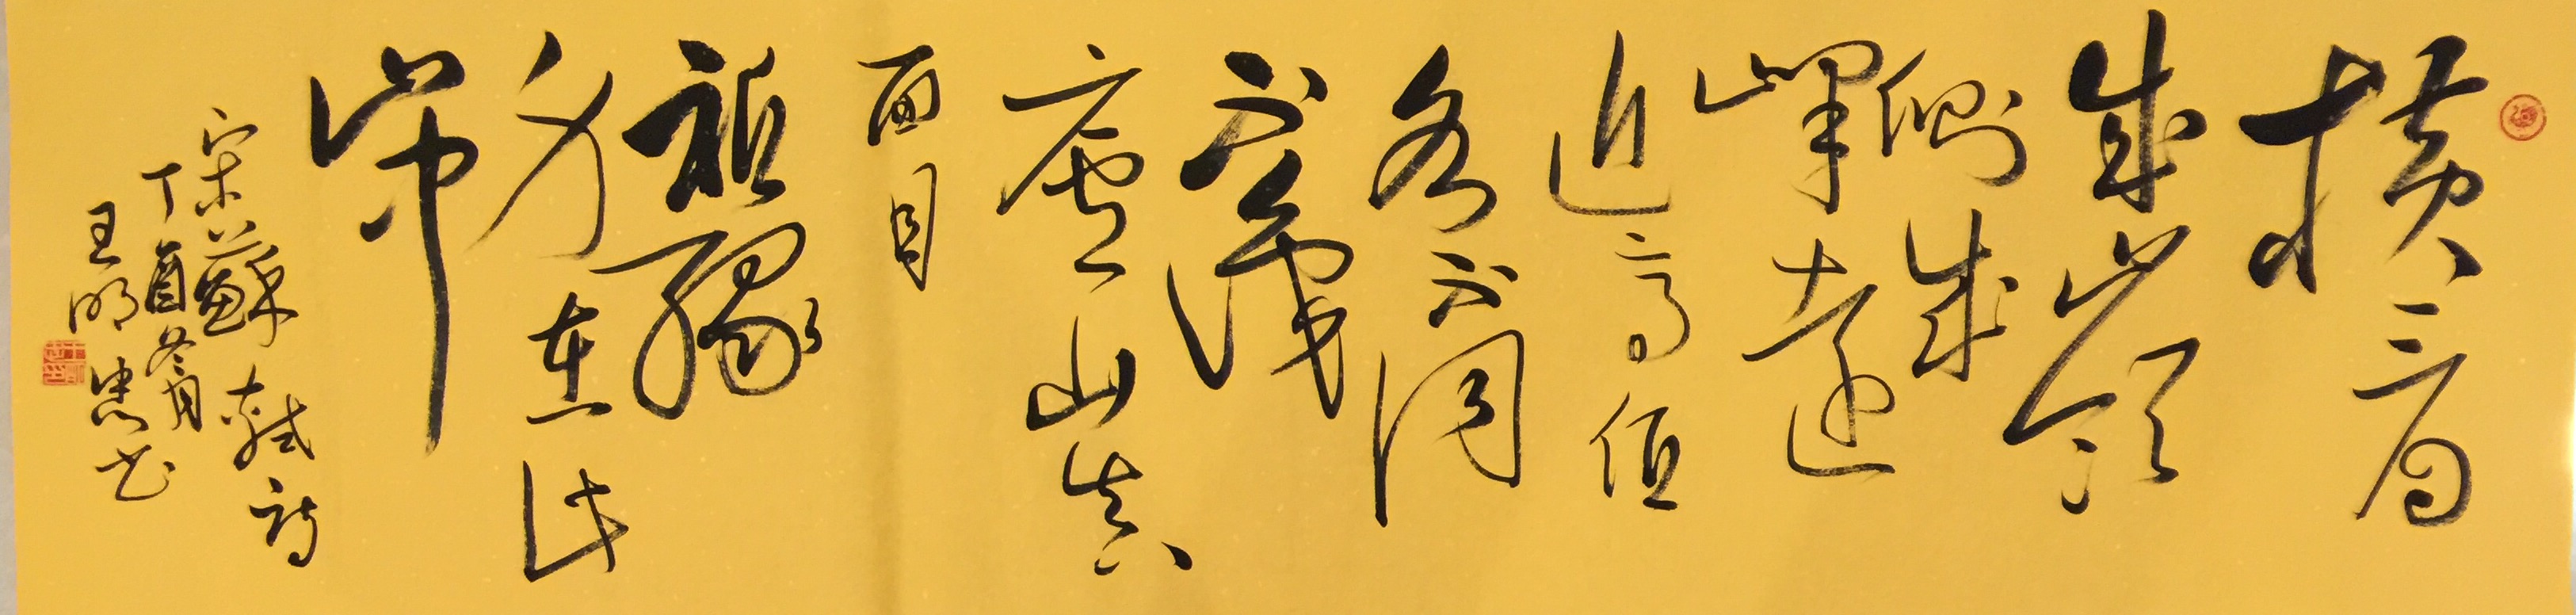 橫看
成嶺
側成
峰遠
近高低
各不同
不識
廬山真
面目
祗緣
身在此
山中
宋蘇軾詩
丁酉冬月
王明忠书